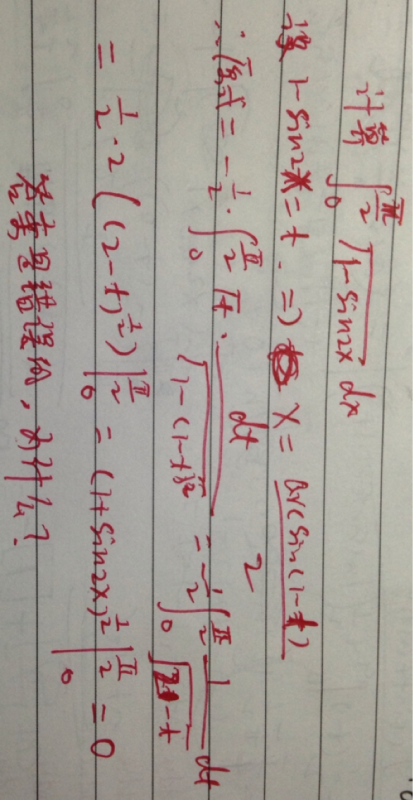 计算 ∫₀^{π/2} √(1-sin2x) dx
设 1-sin2x = t. => x = arcsin(1-t)/2
∴ 原式 = -1/2 · ∫₀^{π/2} √t · dt/√(1-(1-t)²) = -1/2 ∫₀^{π/2} 1/√(2-t) dt
= 1/2 · 2 ((2-t)^{1/2}) |₀^{π/2} = (1+sin2x)^{1/2} |₀^{π/2} = 0
答案是错误的，为什么？